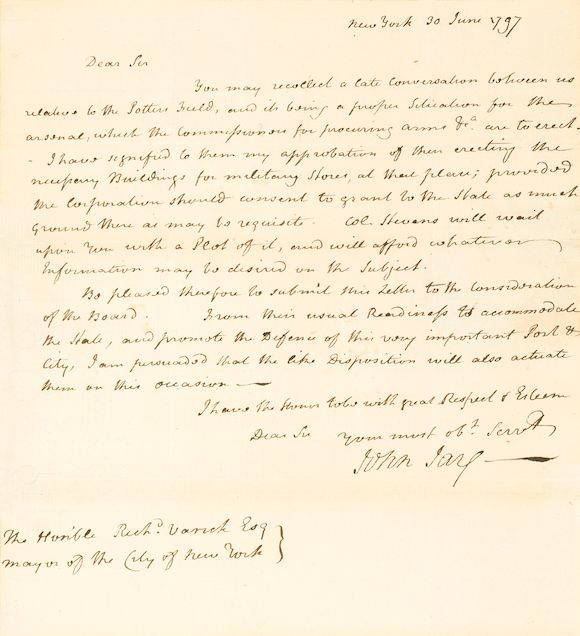 New York 30 June 1797
Dear Sir
You may recollect a late Conversation between us
relative to the Potters Field, and its being a proper Situation for the
arsenal, which the Commissioners for procuring arms &ca. are to erect.
- I have signified to them my approbation of their erecting the
necessary Buildings for military Stores, at that place; provided
the Corporation should consent to grant to the State as much
Ground there as may be requisite. Col. Stevens will wait
upon You with a Plot of it, and will afford whatever
Information may be desired on the Subject.
Be pleased therefore to submit this Letter to the Consideration
of the Board. From their usual Readiness to accommodate
the State, and promote the Defence of this very important Port &
City, I am persuaded that the like Disposition will also actuate
them on this occasion —
I have the Honor to be with great Respect & Esteem
Dear Sir your most obt. Servt
John Jay —
The Honble Richd. Varick Esq
Mayor of the City of New York